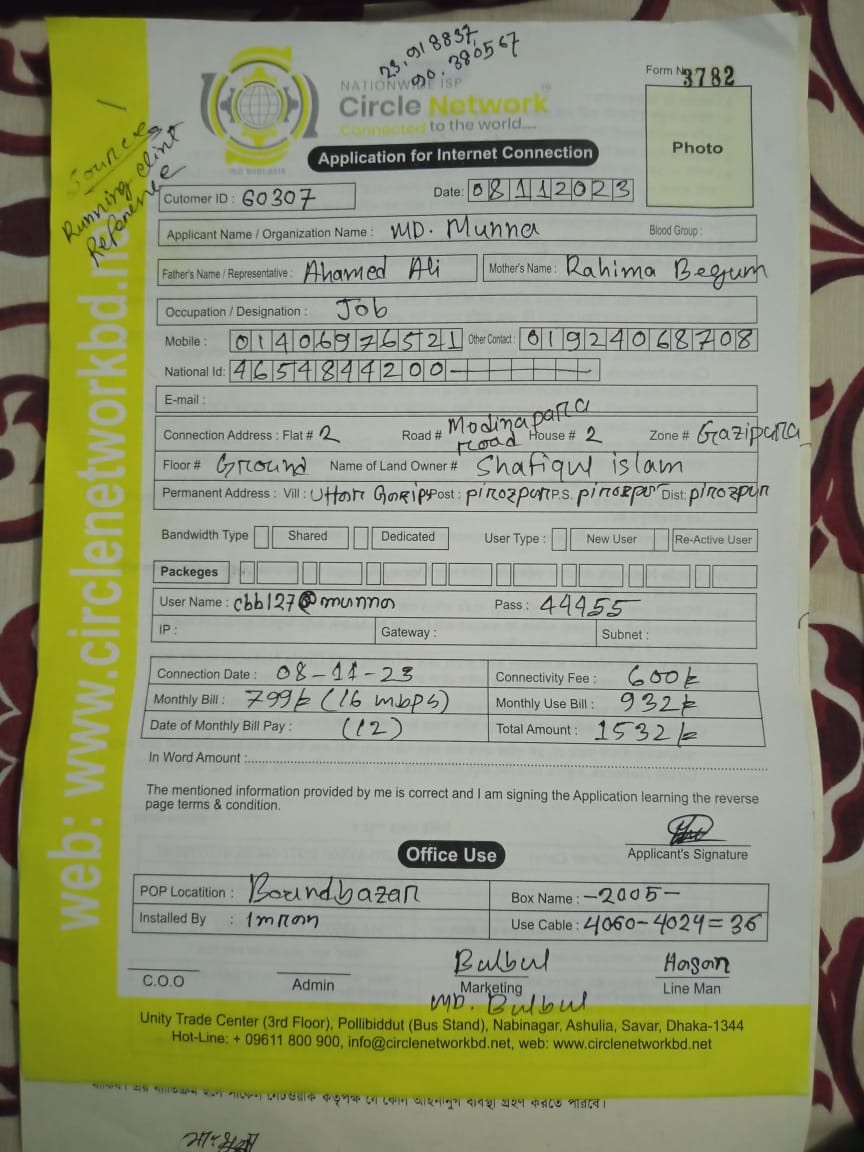 23.918837,
90.380567
NATIONWIDE ISP
Circle Network
Connected to the world....
ISO 9001:2015
Form No 3782
Photo
Source
Running clint
Reference
web: www.circlenetworkbd.net
Application for Internet Connection
Cutomer ID : 60307
Date: 08112023
Applicant Name / Organization Name : MD. Munna Blood Group :
Father's Name / Representative : Ahamed Ali Mother's Name : Rahima Begum
Occupation / Designation : Job
Mobile : 01406976521 Other Contact : 01924068708
National Id: 4654844200
E-mail :
Connection Address : Flat # 2 Road # Modinapara Road House # 2 Zone # Gazipara
Floor # Ground Name of Land Owner # Shafiqul islam
Permanent Address : Vill : Uttor Post : pirozpur P.S. pirozpur Dist: pirozpur
Bandwidth Type Shared Dedicated User Type : New User Re-Active User
Packeges
User Name : cbb127@munna Pass : 44455
IP : Gateway : Subnet :
Connection Date : 08-11-23 Connectivity Fee : 600/-
Monthly Bill : 799/- (16 mbps) Monthly Use Bill : 932/-
Date of Monthly Bill Pay : (12) Total Amount : 1532/-
In Word Amount :
The mentioned information provided by me is correct and I am signing the Application learning the reverse
page terms & condition.
Applicant's Signature
Office Use
POP Locatition : Boundbazar Box Name : -2005-
Installed By : Imron Use Cable : 4060-4024=36
Bulbul Hasan
C.O.O Admin Marketing Line Man
MD. Bulbul
Unity Trade Center (3rd Floor), Pollibiddut (Bus Stand), Nabinagar, Ashulia, Savar, Dhaka-1344
Hot-Line: + 09611 800 900, info@circlenetworkbd.net, web: www.circlenetworkbd.net
কোন আইনানুগ ব্যবস্থা গ্রহণ করতে পারবে।